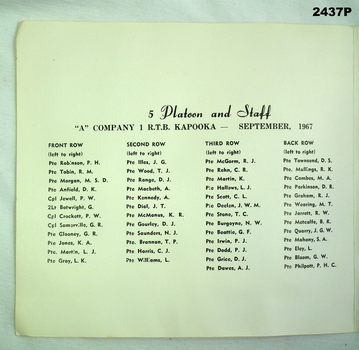 2437P
5 Platoon and Staff
"A" COMPANY 1 R.T.B. KAPOOKA — SEPTEMBER, 1967
FRONT ROW
(left to right)
Pte Robinson, P. H.
Pte Tobin, R. M.
Pte Morgan, M. S. D.
Pte Anfield, D. K.
Cpl Jewell, P. W.
2Lt Botwright, G.
Cpl Crockett, P. W.
Cpl Somerville, G. R.
Pte Clooney, G. R.
Pte Jones, K. A.
Pte Martin, L. J.
Pte Gray, L. K.
SECOND ROW
(left to right)
Pte Illes, J. G.
Pte Wood, T. J.
Pte Range, D. J.
Pte Macbeth, A.
Pte Kennedy, A.
Pte Diel, J. T.
Pte McManus, K. R.
Pte Gourley, D. J.
Pte Saunders, N. J.
Pte Brennan, T. P.
Pte Harris, C. J.
Pte Williams, L.
THIRD ROW
(left to right)
Pte McGorm, R. J.
Pte Rohn, C. R.
Pte Martin, K.
Pte Hallows, L. J.
Pte Scott, C. L.
Pte Declan, J. W. M.
Pte Stone, T. C.
Pte Burgoyne, N. W.
Pte Beattie, G. F.
Pte Irwin, P. J.
Pte Dodd, P. J.
Pte Grice, D. J.
Pte Dawes, A. J.
BACK ROW
(left to right)
Pte Townsend, D. S.
Pte Mullings, R. K.
Pte Combes, M. A.
Pte Parkinson, D. R.
Pte Graham, R. J.
Pte Wearing, M. T.
Pte Jarrett, R. W.
Pte Metcalfe, B. R.
Pte Quarry, J. G. W.
Pte Mahony, S. A.
Pte Eley, L.
Pte Bloom, G. W.
Pte Philpott, P. H. C.